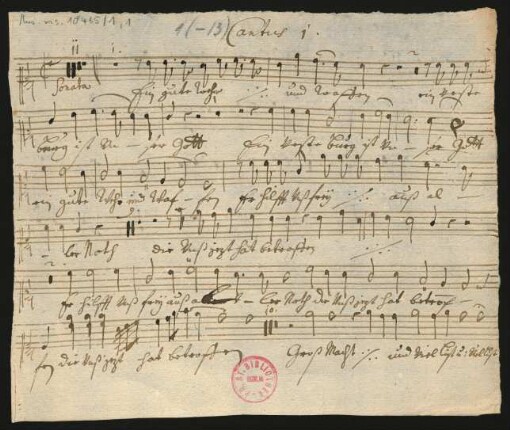 Mus. ms. 10485/1, 1
1 (-13) Cantus 1.
11 1.
Sonata Ein gute Wehr und Waffen ein veste
burg ist Un - ser Gott Ein veste burg ist Un - ser Gott
ein gute Wehr und Waf - fen Er hilfft Unß frey auß al -
- ler Noth die Unß jezt hat betroffen
Er hilfft Unß frey auß al - ler Noth die Unß jezt hat betrof -
fen die Unß jezt hat betroffen Groß Macht und Viel list u: Viel list